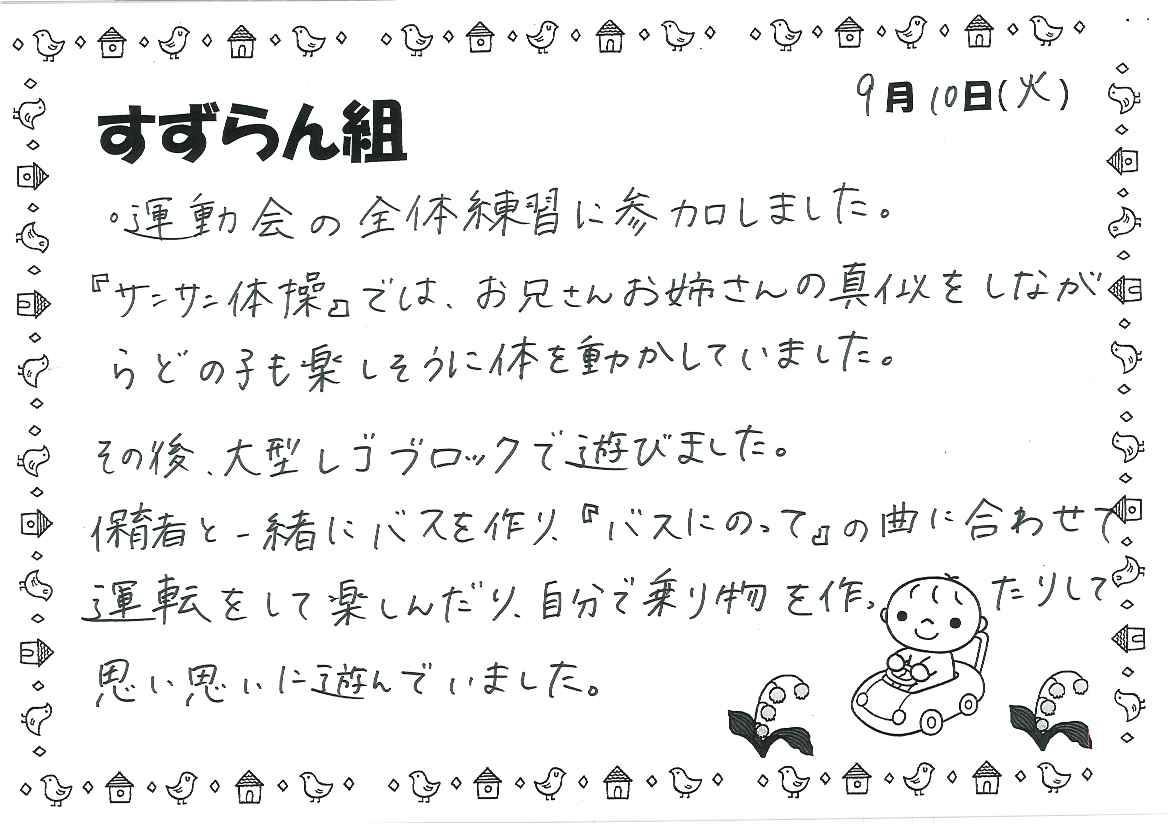 9月10日(火)
すずらん組
。運動会の全体練習に参加しました。
『サンサン体操』では、お兄さんお姉さんの真似をしなが
らどの子も楽しそうに体を動かしていました。
その後、大型レゴブロックで遊びました。
保育者と一緒にバスを作り、『バスにのって』の曲に合わせて
運転をして楽しんだり、自分で乗り物を作ったりして
思い思いに遊んでいました。